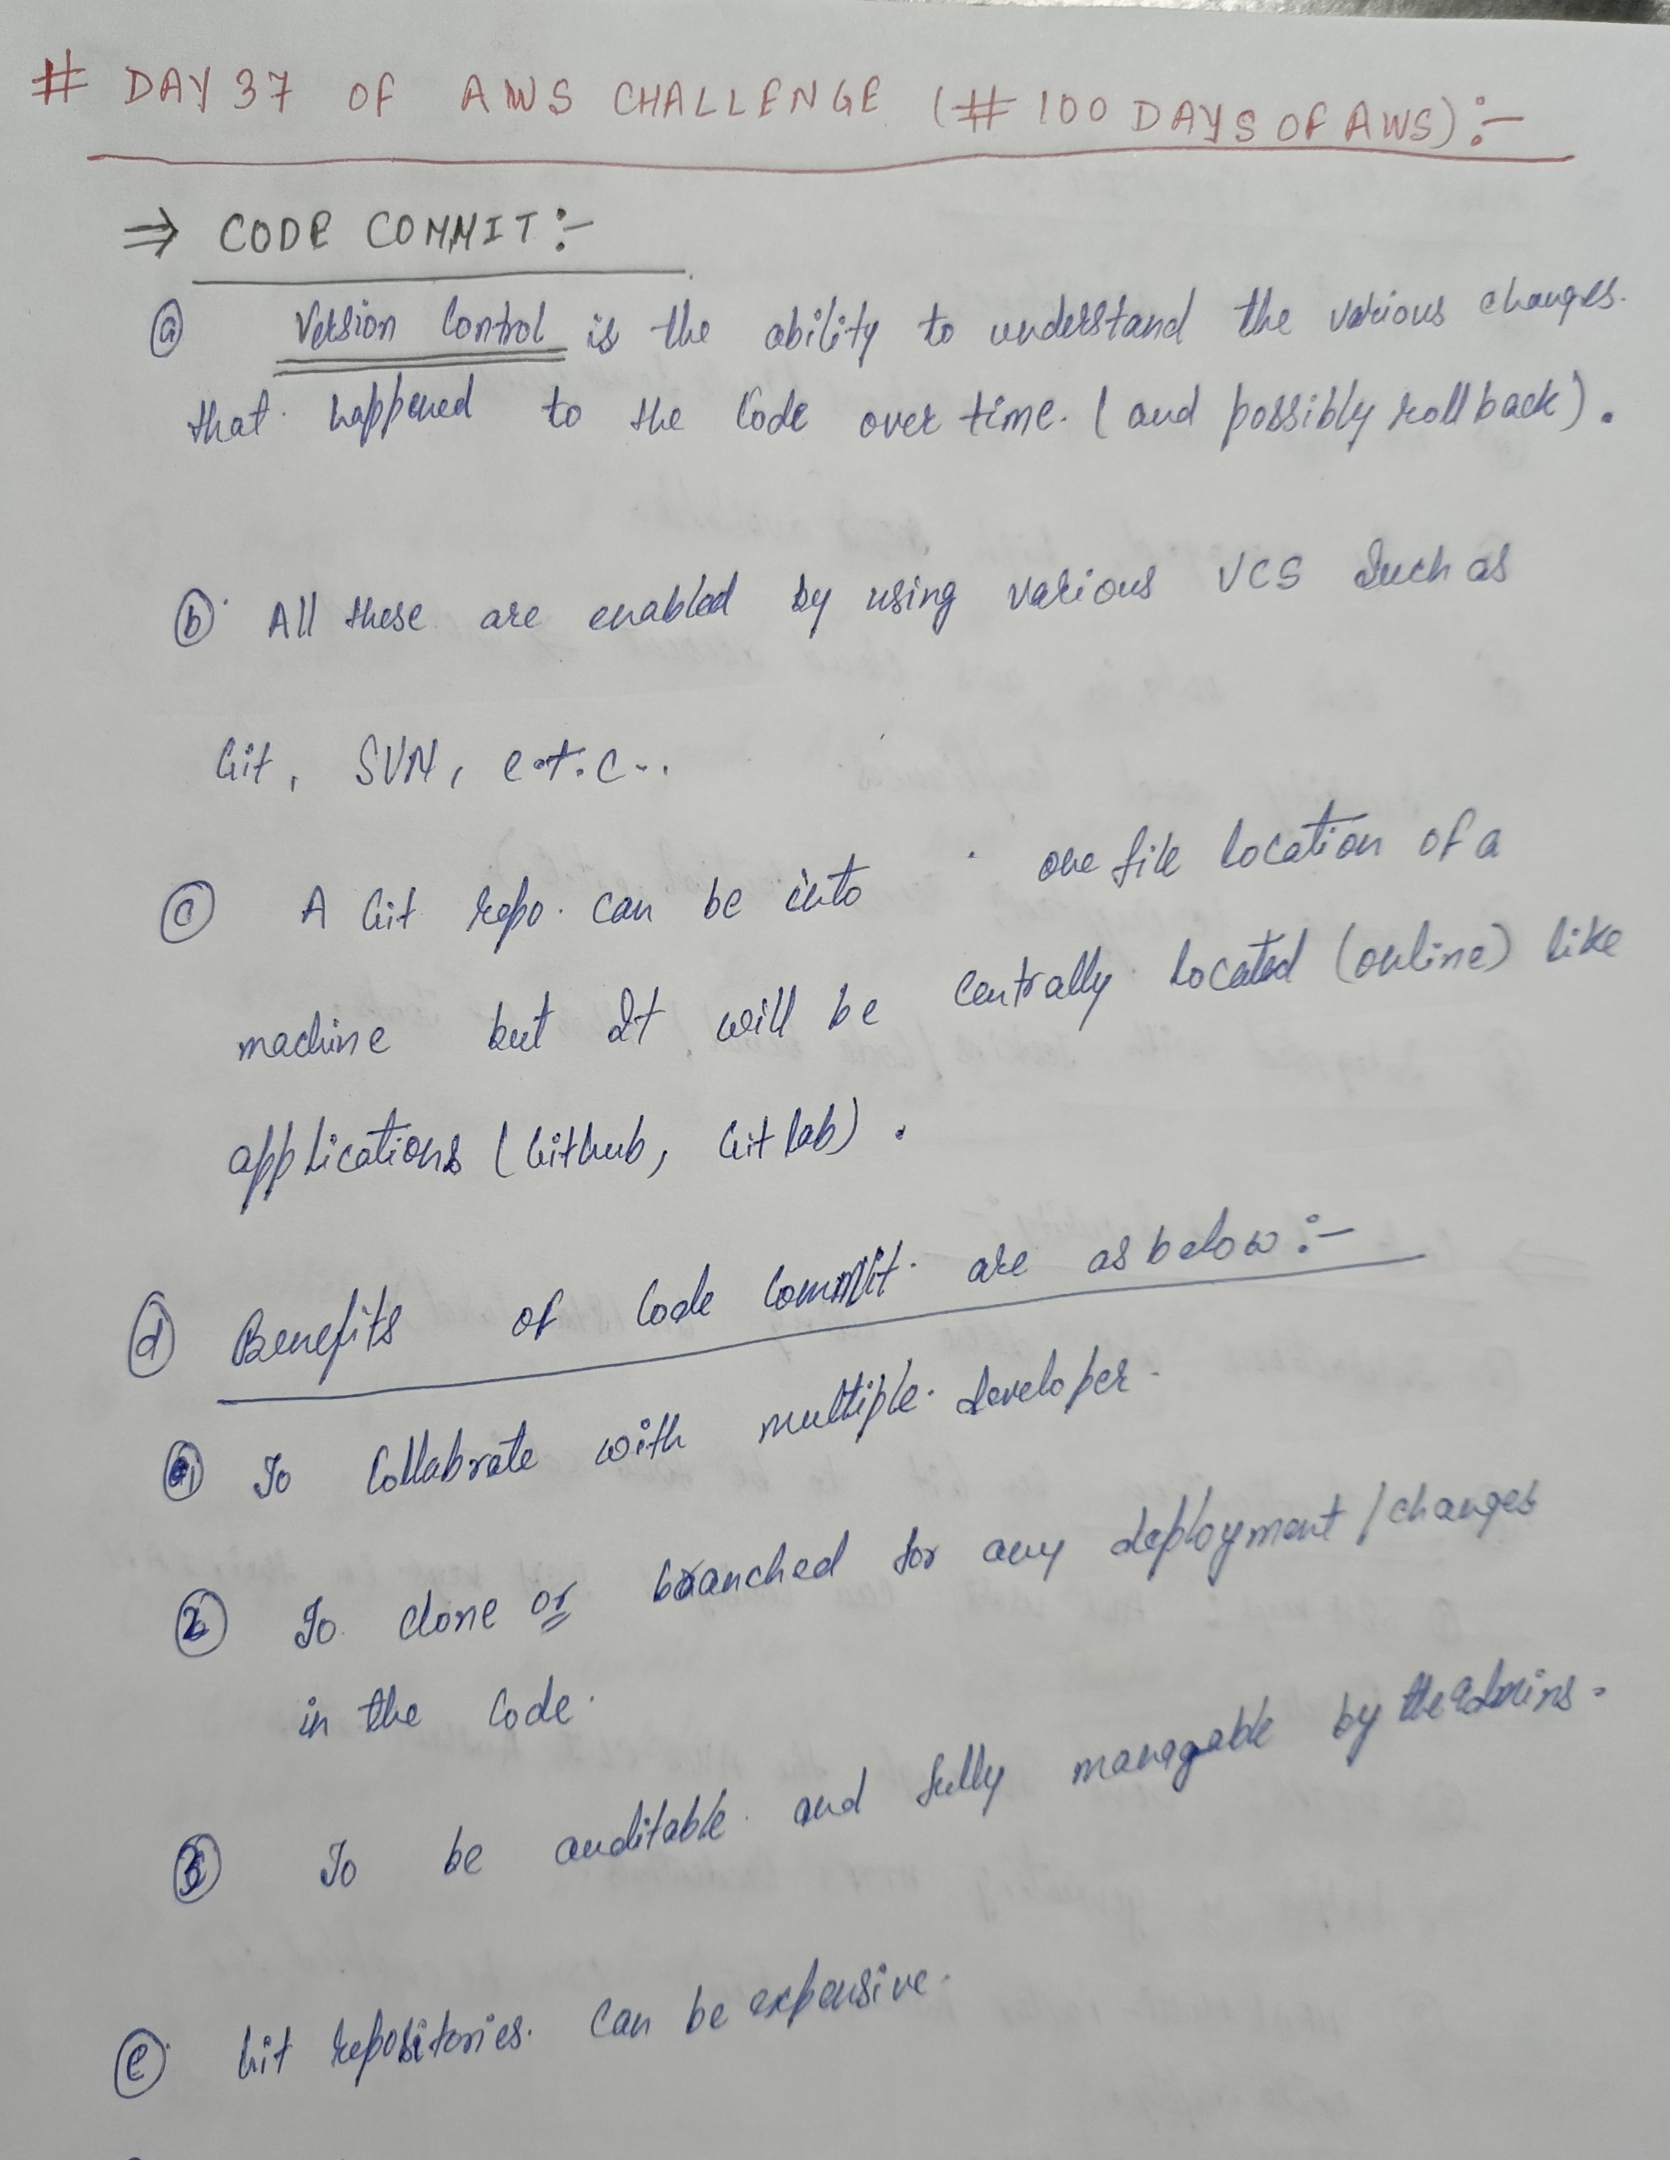 # DAY 37 OF AWS CHALLENGE (# 100 DAYS OF AWS) :-
⇒ CODE COMMIT :-
ⓐ Version Control is the ability to understand the various changes.
that happened to the Code over time. (and possibly rollback).
ⓑ All these are enabled by using various VCS Such as
Git, SVN, e.t.c..
ⓒ A Git repo. can be into one file location of a
machine but It will be Centrally located (online) like
applications (Github, Gitlab).
ⓓ Benefits of Code Commit are as below :-
① To Collabrate with multiple developer.
② To clone or branched for any deployment / changes
in the Code.
③ To be auditable and fully managable by the admins.
ⓔ Git repositories. Can be expensive.